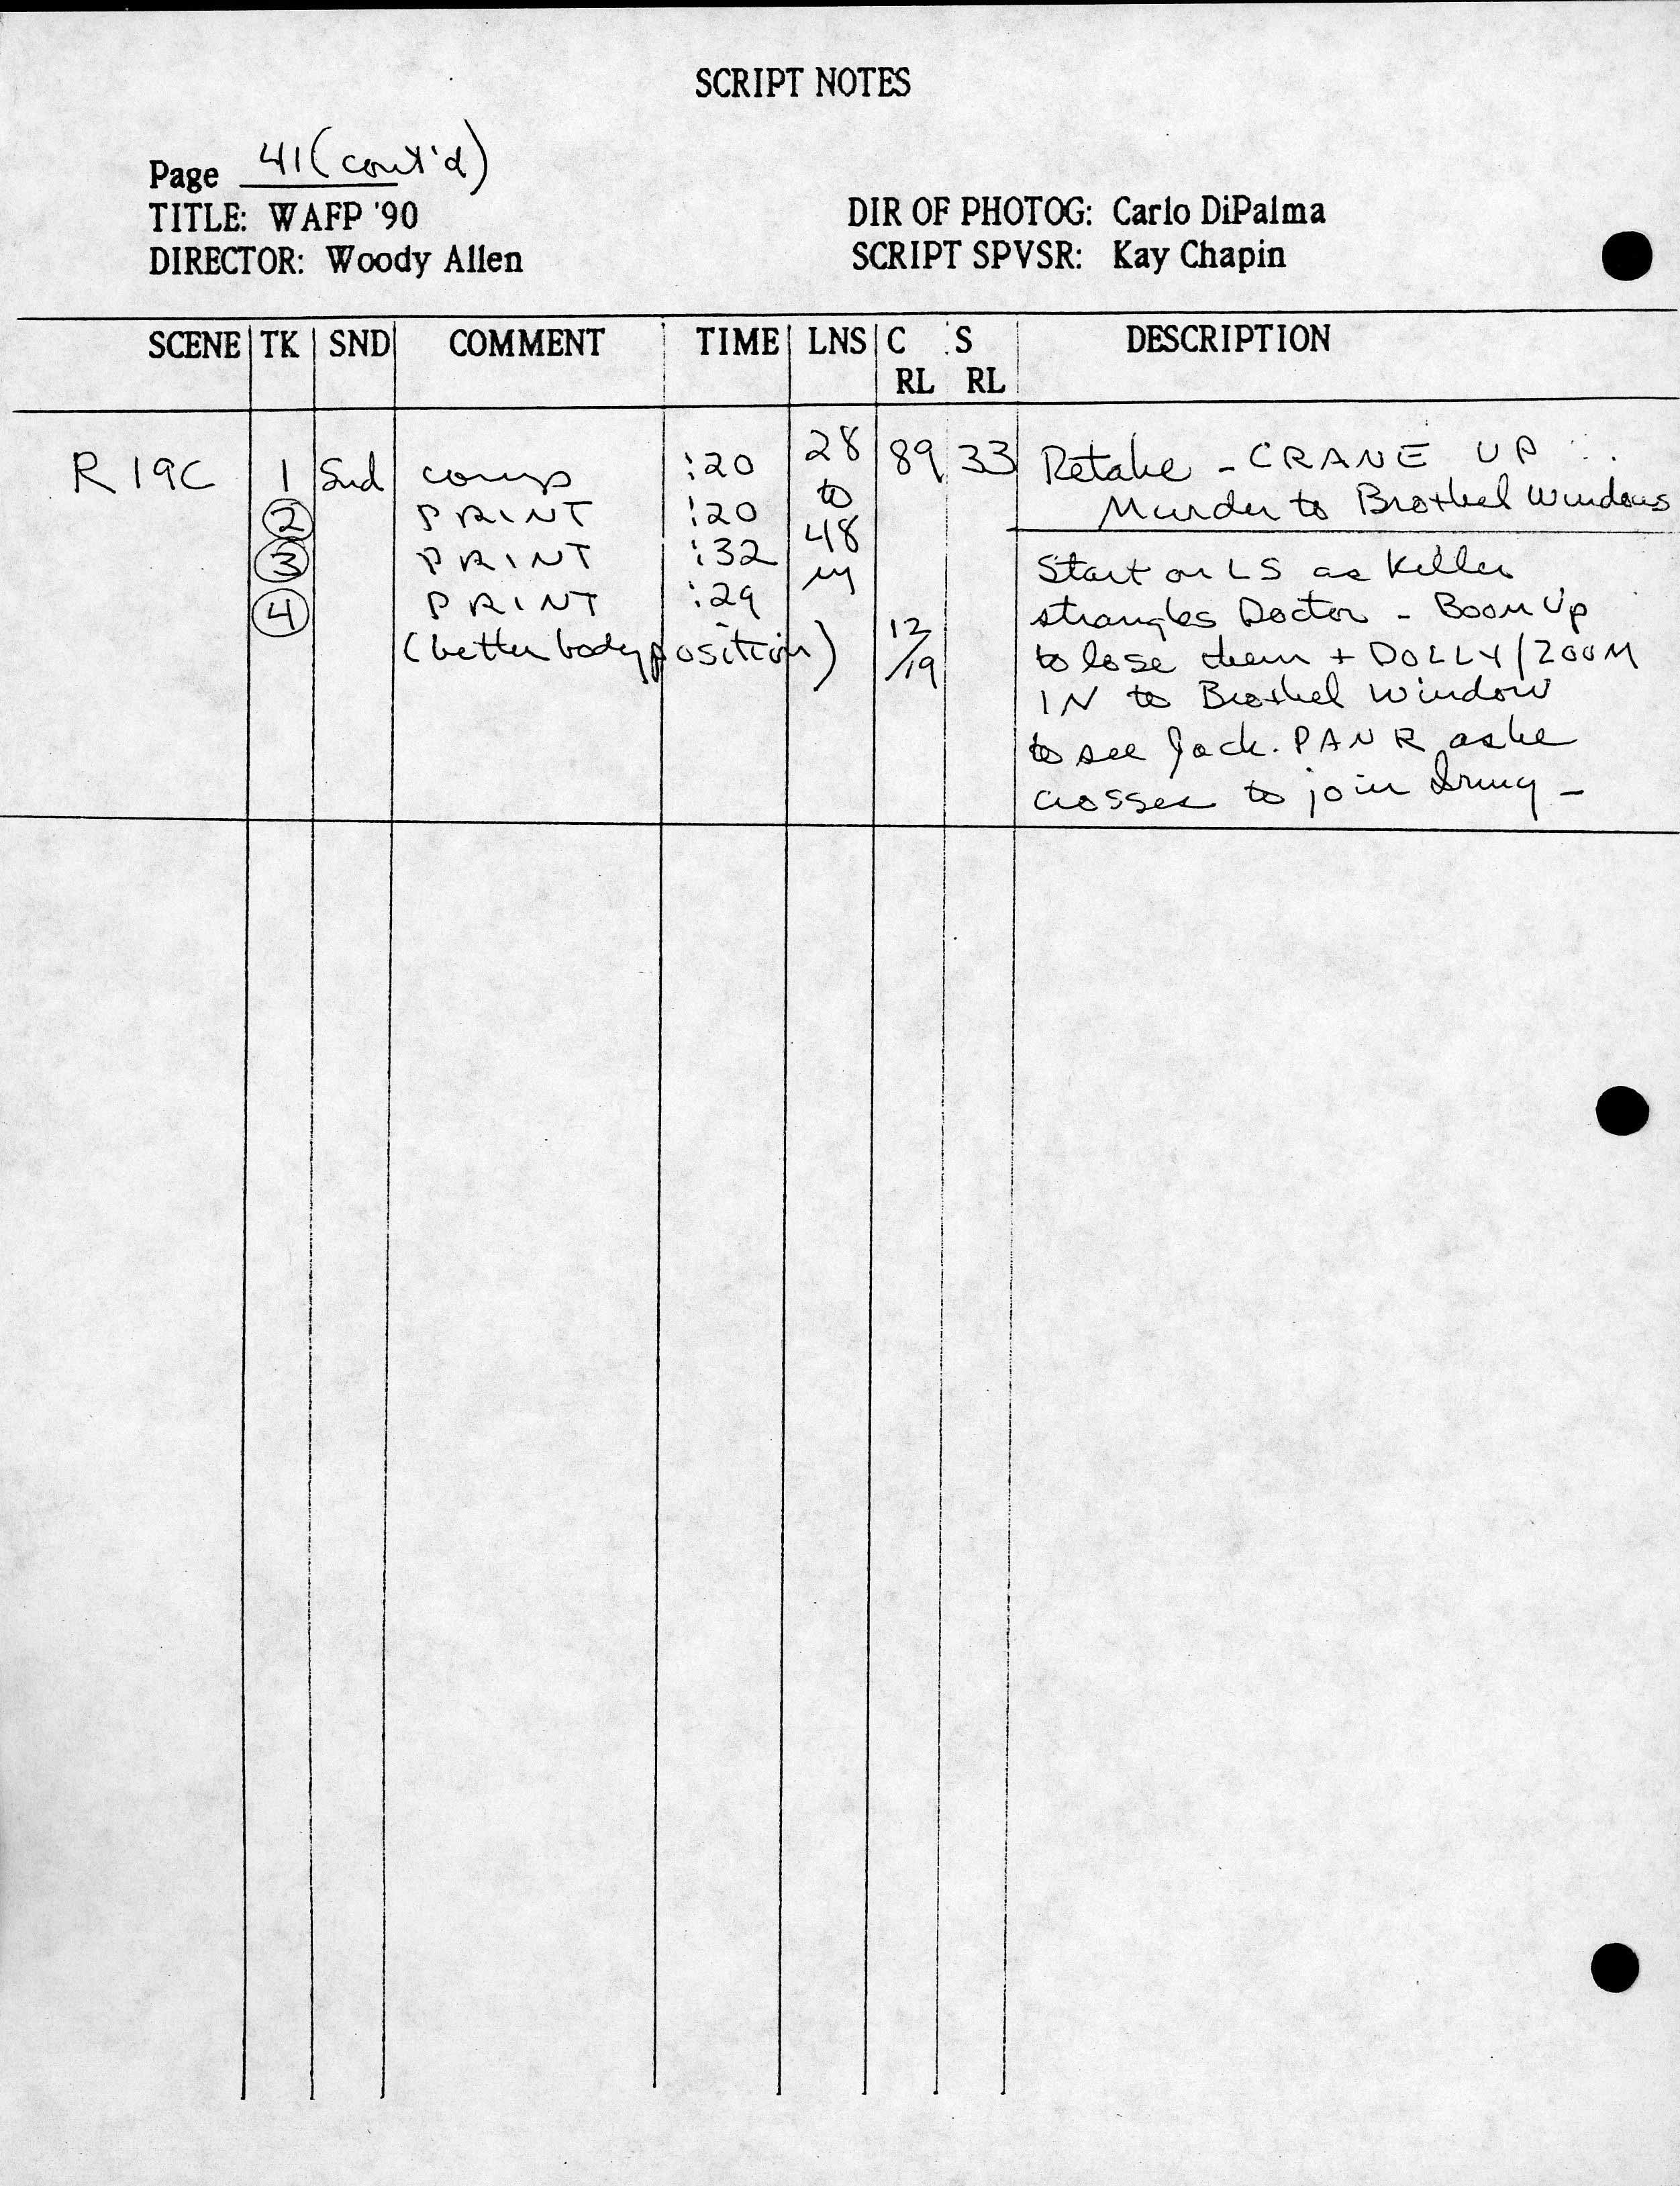 SCRIPT NOTES
Page 41 (cont'd)
TITLE: WAFP '90
DIRECTOR: Woody Allen
DIR OF PHOTOG: Carlo DiPalma
SCRIPT SPVSR: Kay Chapin
SCENE TK SND COMMENT TIME LNS C RL S RL DESCRIPTION
R19C 1 Snd comp :20 28 89 33 Retake - CRANE UP
to Murder to Brothel Windows
2 PRINT :20 48
3 PRINT :32
4 PRINT :29
(better body position) 12/19
Start on LS as Killer
strangles Doctor - Boom Up
to lose them + DOLLY/ZOOM
IN to Brothel Window
to see Jack. PAN R as he
crosses to join Irmy -